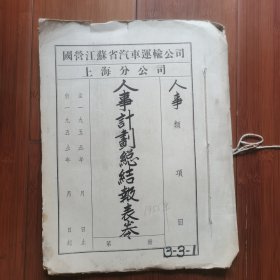 國營江蘇省汽車運輸公司
上海分公司
人事 類 項 目
人事計劃總結報表卷
第 冊
自一九五五年 月 日起
至一九五五年 月 日止
1955年
3-3-1